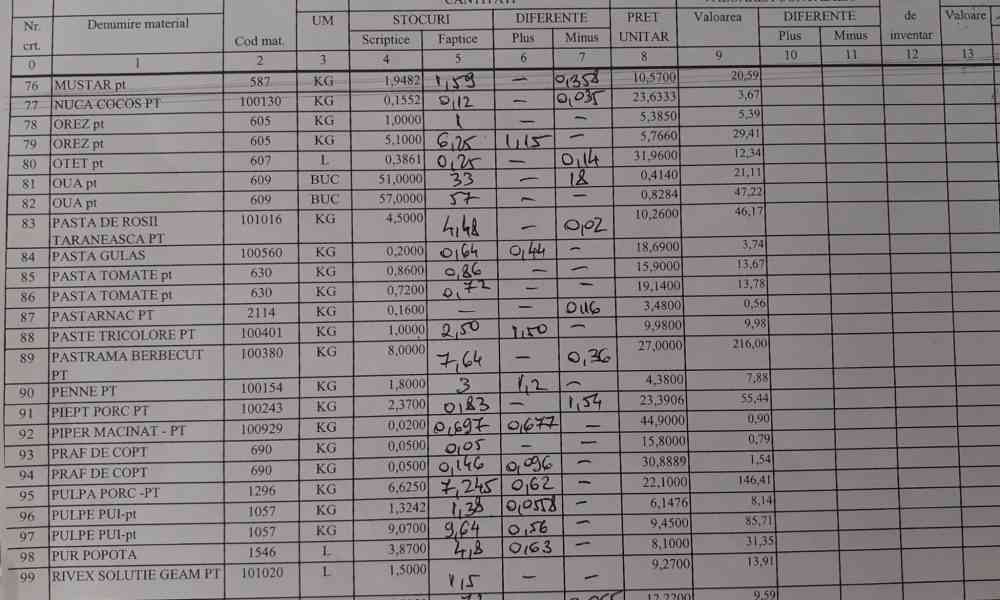 CANTITATI
Nr. crt. Denumire material Cod mat. UM STOCURI DIFERENTE PRET UNITAR Valoarea DIFERENTE de inventar Valoare
Scriptice Faptice Plus Minus Plus Minus
0 1 2 3 4 5 6 7 8 9 10 11 12 13
76 MUSTAR pt 587 KG 1,9482 1,59 — 0,358 10,5700 20,59
77 NUCA COCOS PT 100130 KG 0,1552 0,12 — 0,035 23,6333 3,67
78 OREZ pt 605 KG 1,0000 1 — — 5,3850 5,39
79 OREZ pt 605 KG 5,1000 6,25 1,15 — 5,7660 29,41
80 OTET pt 607 L 0,3861 0,25 — 0,14 31,9600 12,34
81 OUA pt 609 BUC 51,0000 33 — 18 0,4140 21,11
82 OUA pt 609 BUC 57,0000 57 — — 0,8284 47,22
83 PASTA DE ROSII 101016 KG 4,5000 4,48 — 0,02 10,2600 46,17
TARANEASCA PT
84 PASTA GULAS 100560 KG 0,2000 0,64 0,44 — 18,6900 3,74
85 PASTA TOMATE pt 630 KG 0,8600 0,86 — — 15,9000 13,67
86 PASTA TOMATE pt 630 KG 0,7200 0,72 — — 19,1400 13,78
87 PASTARNAC PT 2114 KG 0,1600 — — 0,16 3,4800 0,56
88 PASTE TRICOLORE PT 100401 KG 1,0000 2,50 1,50 — 9,9800 9,98
89 PASTRAMA BERBECUT 100380 KG 8,0000 7,64 — 0,36 27,0000 216,00
PT
90 PENNE PT 100154 KG 1,8000 3 1,2 — 4,3800 7,88
91 PIEPT PORC PT 100243 KG 2,3700 0,83 — 1,54 23,3906 55,44
92 PIPER MACINAT - PT 100929 KG 0,0200 0,697 0,677 — 44,9000 0,90
93 PRAF DE COPT 690 KG 0,0500 0,05 — — 15,8000 0,79
94 PRAF DE COPT 690 KG 0,0500 0,146 0,096 — 30,8889 1,54
95 PULPA PORC -PT 1296 KG 6,6250 7,245 0,62 — 22,1000 146,41
96 PULPE PUI-pt 1057 KG 1,3242 1,38 0,0558 — 6,1476 8,14
97 PULPE PUI-pt 1057 KG 9,0700 9,64 0,56 — 9,4500 85,71
98 PUR POPOTA 1546 L 3,8700 4,8 0,63 — 8,1000 31,35
99 RIVEX SOLUTIE GEAM PT 101020 L 1,5000 1,5 — — 9,2700 13,91
12,2200 9,59